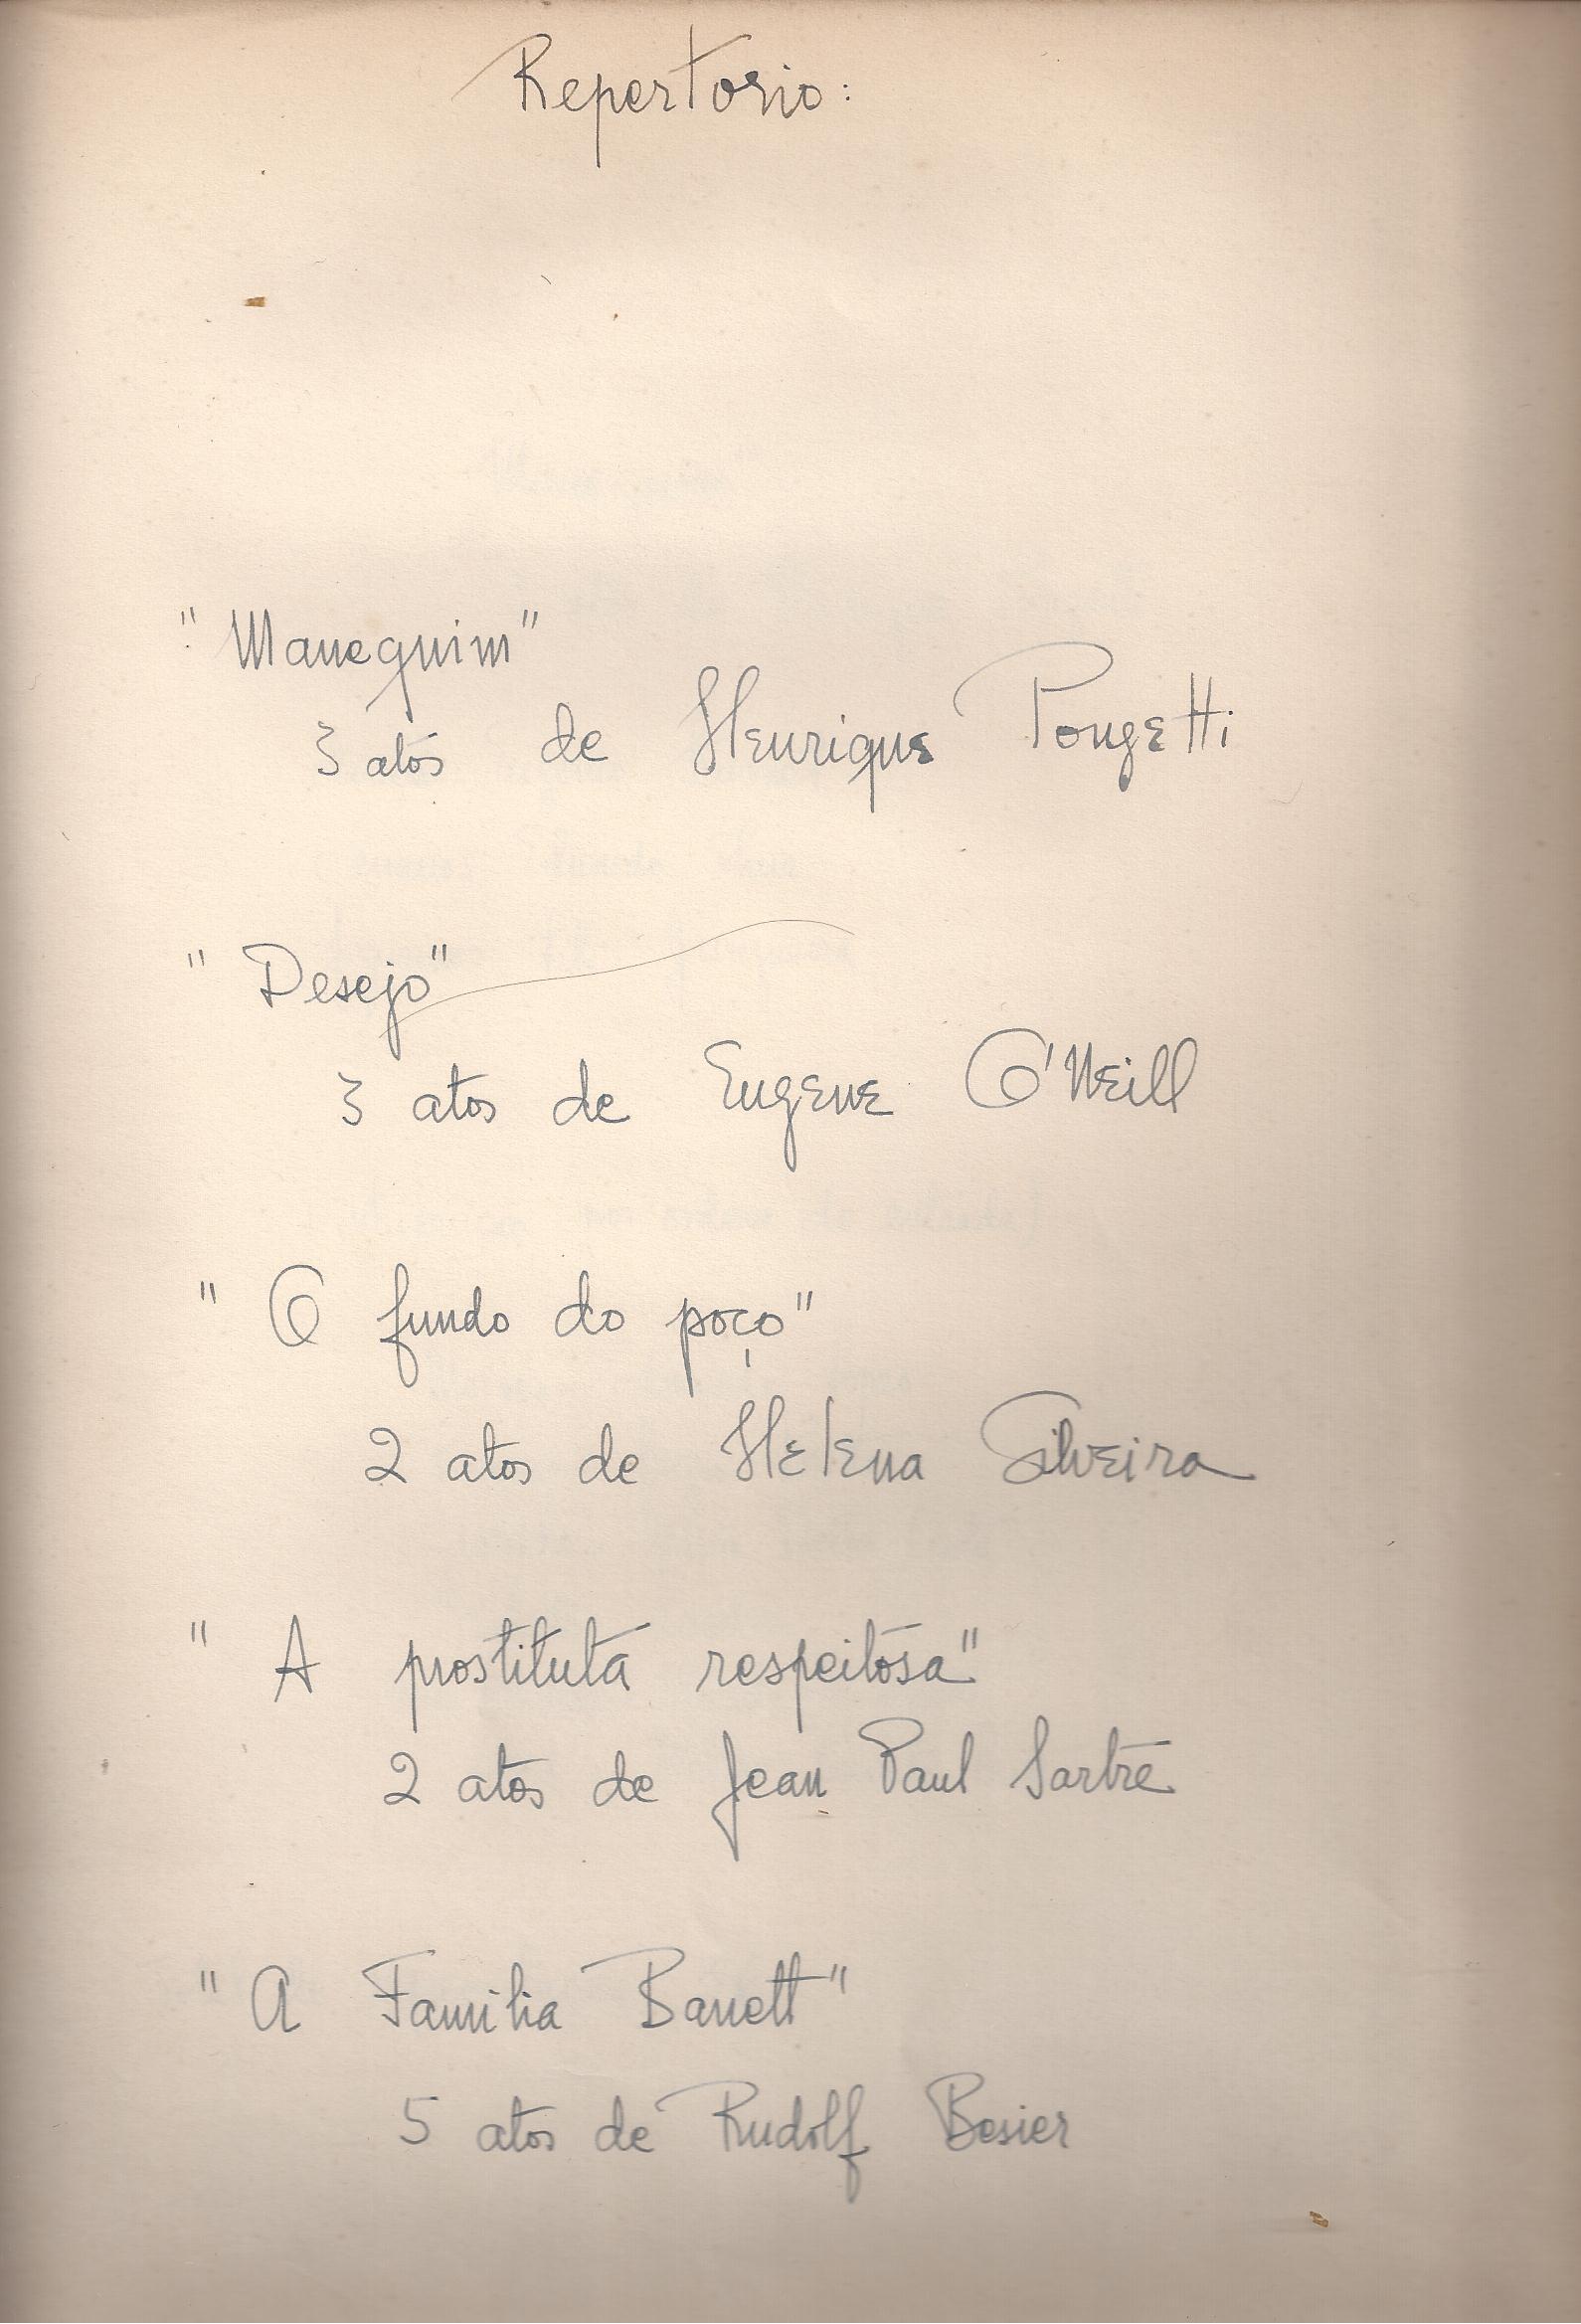 Repertorio:
"Manequim"
3 atos de Henrique Pongetti
"Desejo"
3 atos de Eugene O'Neill
"O fundo do poço"
2 atos de Helena Silveira
"A prostituta respeitosa"
2 atos de Jean Paul Sartre
"A Familia Barrett"
5 atos de Rudolf Besier